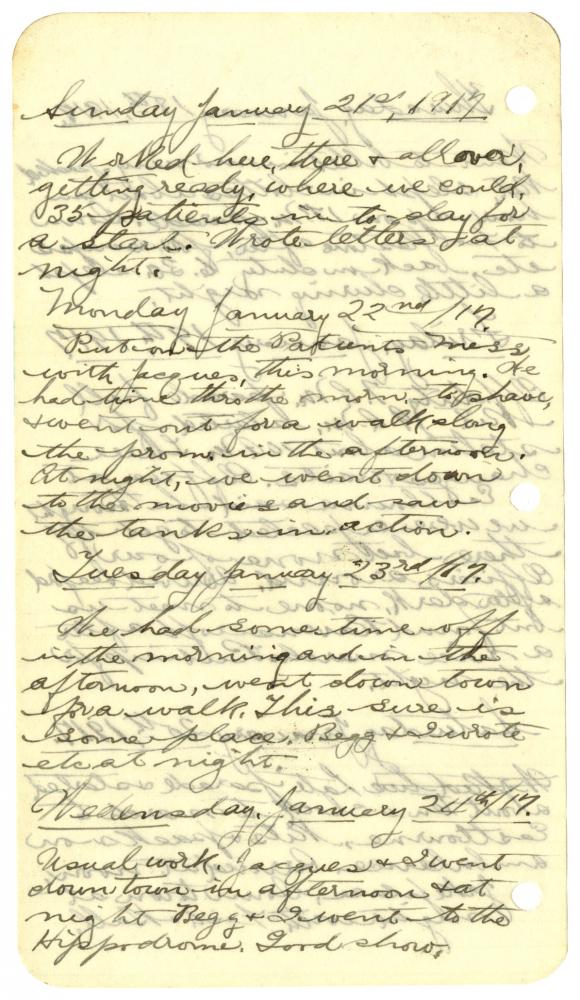 Sunday January 21st, 1917
Worked here, there & all over,
getting ready, where we could.
35 patients in to-day for
a start. Wrote letters at
night.
Monday January 22nd/17.
Put on the Patients mess
with Jacques, this morning. We
had time thro the morn. to shave,
& went out for a walk along
the prom. in the afternoon.
At night, we went down
to the movies and saw
the tanks in action.
Tuesday January 23rd/17.
We had some time off
in the morning and in the
afternoon, went down town
for a walk. This sure is
some place. Begg & I wrote
etc at night.
Wedensday. January 24th/17.
Usual work. Jacques & I went
down town in afternoon & at
night Begg & I went to the
Hippodrome. Good show.